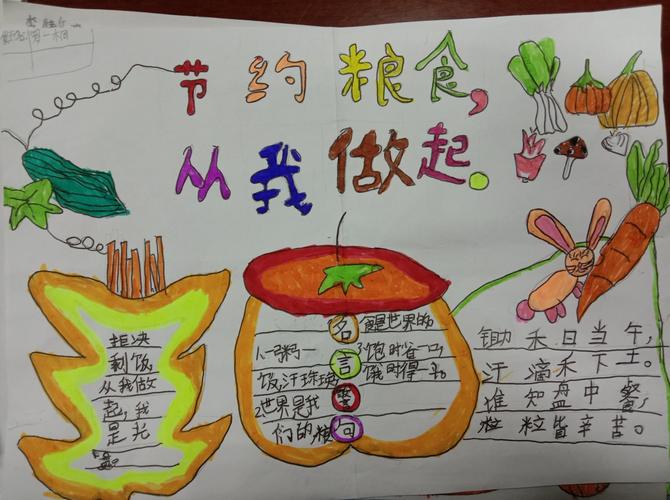 节约粮食,
从我做起。
拒决
剩饭,
从我做
起,我
是光
名言警句
1.一粥一
饭,汗珠珠
2世界是我
们的粮
食是世界的
饱时省一口,
饿时得一斗。
锄禾日当午,
汗滴禾下土。
谁知盘中餐,
粒粒皆辛苦。